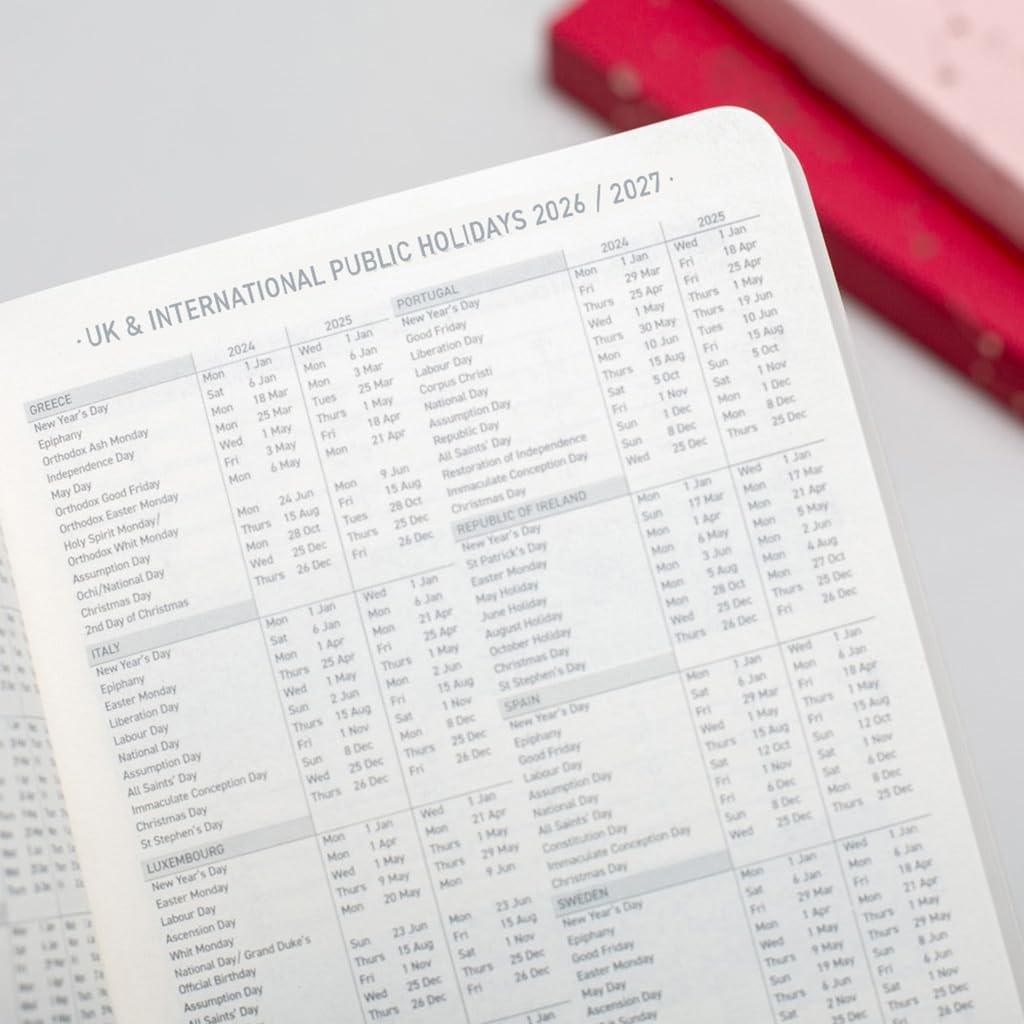 · UK & INTERNATIONAL PUBLIC HOLIDAYS 2026 / 2027 ·
2024 2025
GREECE
New Year's Day Mon 1 Jan Wed 1 Jan
Epiphany Sat 6 Jan Mon 6 Jan
Orthodox Ash Monday Mon 18 Mar Mon 3 Mar
Independence Day Mon 25 Mar Tues 25 Mar
May Day Wed 1 May Thurs 1 May
Orthodox Good Friday Fri 3 May Fri 18 Apr
Orthodox Easter Monday Mon 6 May Mon 21 Apr
Holy Spirit Monday/
Orthodox Whit Monday Mon 24 Jun Mon 9 Jun
Assumption Day Thurs 15 Aug Fri 15 Aug
Ochi/National Day Mon 28 Oct Tues 28 Oct
Christmas Day Wed 25 Dec Thurs 25 Dec
2nd Day of Christmas Thurs 26 Dec Fri 26 Dec
ITALY
New Year's Day Mon 1 Jan Wed 1 Jan
Epiphany Sat 6 Jan Mon 6 Jan
Easter Monday Mon 1 Apr Mon 21 Apr
Liberation Day Thurs 25 Apr Fri 25 Apr
Labour Day Wed 1 May Thurs 1 May
National Day Sun 2 Jun Mon 2 Jun
Assumption Day Thurs 15 Aug Fri 15 Aug
All Saints' Day Fri 1 Nov Sat 1 Nov
Immaculate Conception Day Sun 8 Dec Mon 8 Dec
Christmas Day Wed 25 Dec Thurs 25 Dec
St Stephen's Day Thurs 26 Dec Fri 26 Dec
LUXEMBOURG
New Year's Day Mon 1 Jan Wed 1 Jan
Easter Monday Mon 1 Apr Mon 21 Apr
Labour Day Wed 1 May Thurs 1 May
Ascension Day Thurs 9 May Thurs 29 May
Whit Monday Mon 20 May Mon 9 Jun
National Day/ Grand Duke's
Official Birthday Sun 23 Jun Mon 23 Jun
Assumption Day Thurs 15 Aug Fri 15 Aug
All Saints' Day Fri 1 Nov Sat 1 Nov
Wed 25 Dec Thurs 25 Dec
Thurs 26 Dec Fri 26 Dec
1 Jan
2024 2025
PORTUGAL
New Year's Day Mon 1 Jan Wed 1 Jan
Good Friday Fri 29 Mar Fri 18 Apr
Liberation Day Thurs 25 Apr Fri 25 Apr
Labour Day Wed 1 May Thurs 1 May
Corpus Christi Thurs 30 May Thurs 19 Jun
National Day Mon 10 Jun Tues 10 Jun
Assumption Day Thurs 15 Aug Fri 15 Aug
Republic Day Sat 5 Oct Sun 5 Oct
All Saints' Day Fri 1 Nov Sat 1 Nov
Restoration of Independence Sun 1 Dec Mon 1 Dec
Immaculate Conception Day Sun 8 Dec Mon 8 Dec
Christmas Day Wed 25 Dec Thurs 25 Dec
REPUBLIC OF IRELAND
New Year's Day Mon 1 Jan Wed 1 Jan
St Patrick's Day Sun 17 Mar Mon 17 Mar
Easter Monday Mon 1 Apr Mon 21 Apr
May Holiday Mon 6 May Mon 5 May
June Holiday Mon 3 Jun Mon 2 Jun
August Holiday Mon 5 Aug Mon 4 Aug
October Holiday Mon 28 Oct Mon 27 Oct
Christmas Day Wed 25 Dec Thurs 25 Dec
St Stephen's Day Thurs 26 Dec Fri 26 Dec
SPAIN
New Year's Day Mon 1 Jan Wed 1 Jan
Epiphany Sat 6 Jan Mon 6 Jan
Good Friday Fri 29 Mar Fri 18 Apr
Labour Day Wed 1 May Thurs 1 May
Assumption Day Thurs 15 Aug Fri 15 Aug
National Day Sat 12 Oct Sun 12 Oct
All Saints' Day Fri 1 Nov Sat 1 Nov
Constitution Day Fri 6 Dec Sat 6 Dec
Immaculate Conception Day Sun 8 Dec Mon 8 Dec
Christmas Day Wed 25 Dec Thurs 25 Dec
SWEDEN
New Year's Day Mon 1 Jan Wed 1 Jan
Epiphany Sat 6 Jan Mon 6 Jan
Good Friday Fri 29 Mar Fri 18 Apr
Easter Monday Mon 1 Apr Mon 21 Apr
May Day Wed 1 May Thurs 1 May
Ascension Day Thurs 9 May Thurs 29 May
Sunday Sun 19 May Sun 8 Jun
Thurs 6 Jun Fri 6 Jun
2 Nov 1 Nov
25 Dec Thurs 25 Dec
26 Dec